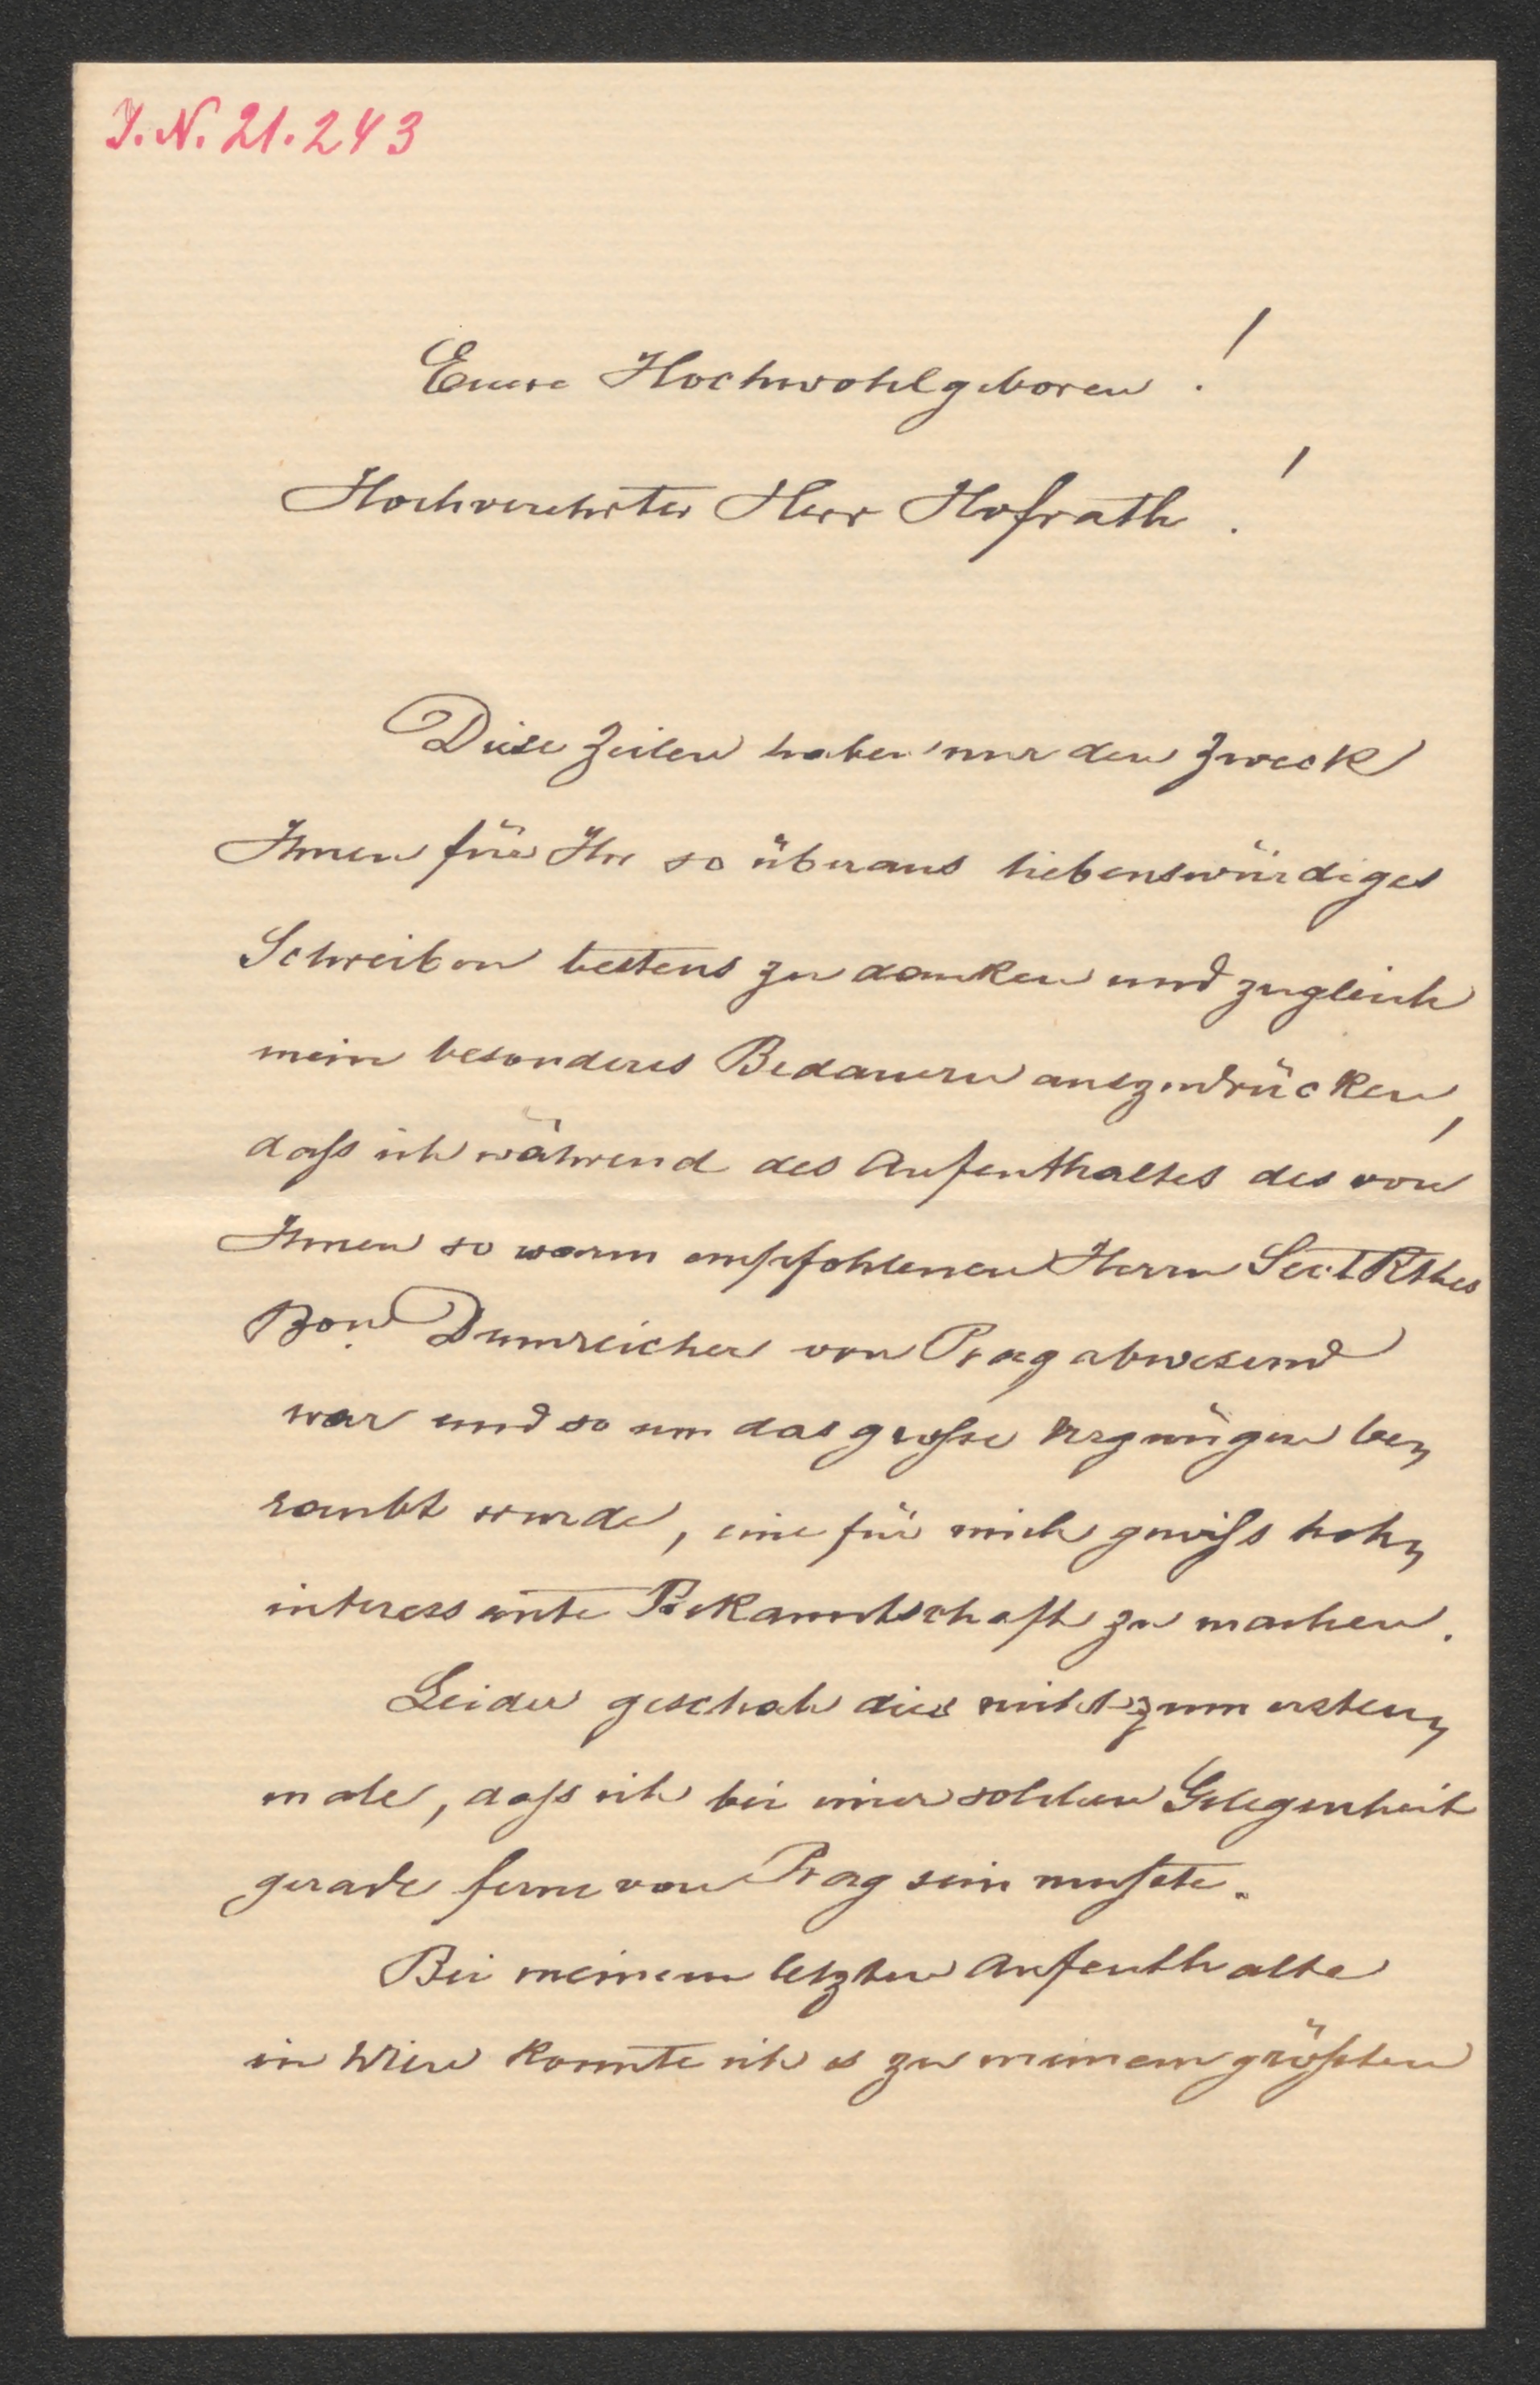 J. N. 21.243
Euere Hochwohlgeboren!
Hochverehrter Herr Hofrath!
Diese Zeilen haben nur den Zweck
Ihnen für Ihr so überaus liebenswürdiges
Schreiben bestens zu danken und zugleich
mein besonderes Bedauern auszudrücken,
daß ich während des Aufenthaltes des von
Ihnen so warm empfohlenen Herrn Sect Rthes
Bon Dumreicher von Prag abwesend
war und so um das große Vergnügen be„
raubt wurde, eine für mich gewiß hoch„
interessante Bekanntschaft zu machen.
Leider geschah dies nicht zum ersten„
male, daß ich bei einer solchen Gelegenheit
gerade ferne von Prag sein mußte.
Bei meinem letzten Aufenthalte
in Wien konnte ich es zu meinem größten